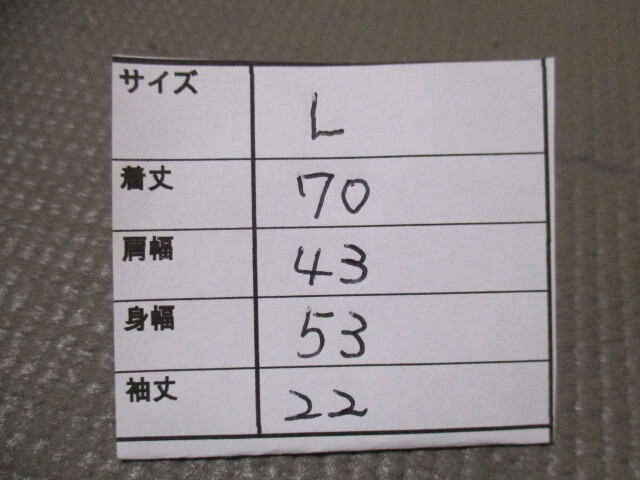 サイズ L
着丈 70
肩幅 43
身幅 53
袖丈 22